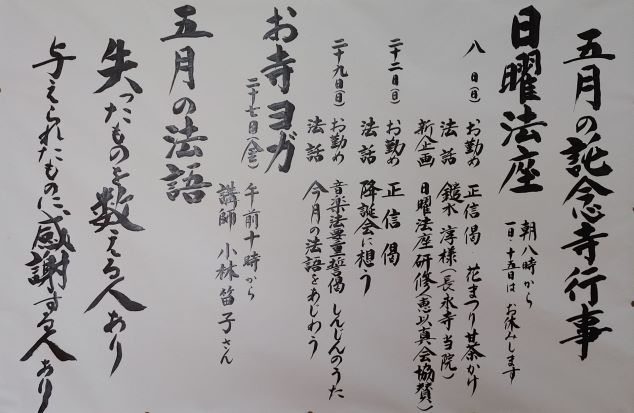 五月の託念寺行事
日曜法座
朝八時から
一日・十五日は お休みします
八 日(日) お勤め 正信偈・花まつり甘茶かけ
法話 鑓水 淳様(長永寺当院)
新企画 日曜法座研修(恵以真会協賛)
二十二日(日) お勤め 正信偈
法話 降誕会に想う
二十九日(日) お勤め 音楽法要重誓偈 しんじんのうた
法話 今月の法語をあじわう
お寺ヨガ
二十七日(金) 午前十時から
講師 小林笛子さん
五月の法語
失ったものを数える人あり
与えられたものに、感謝する人あり